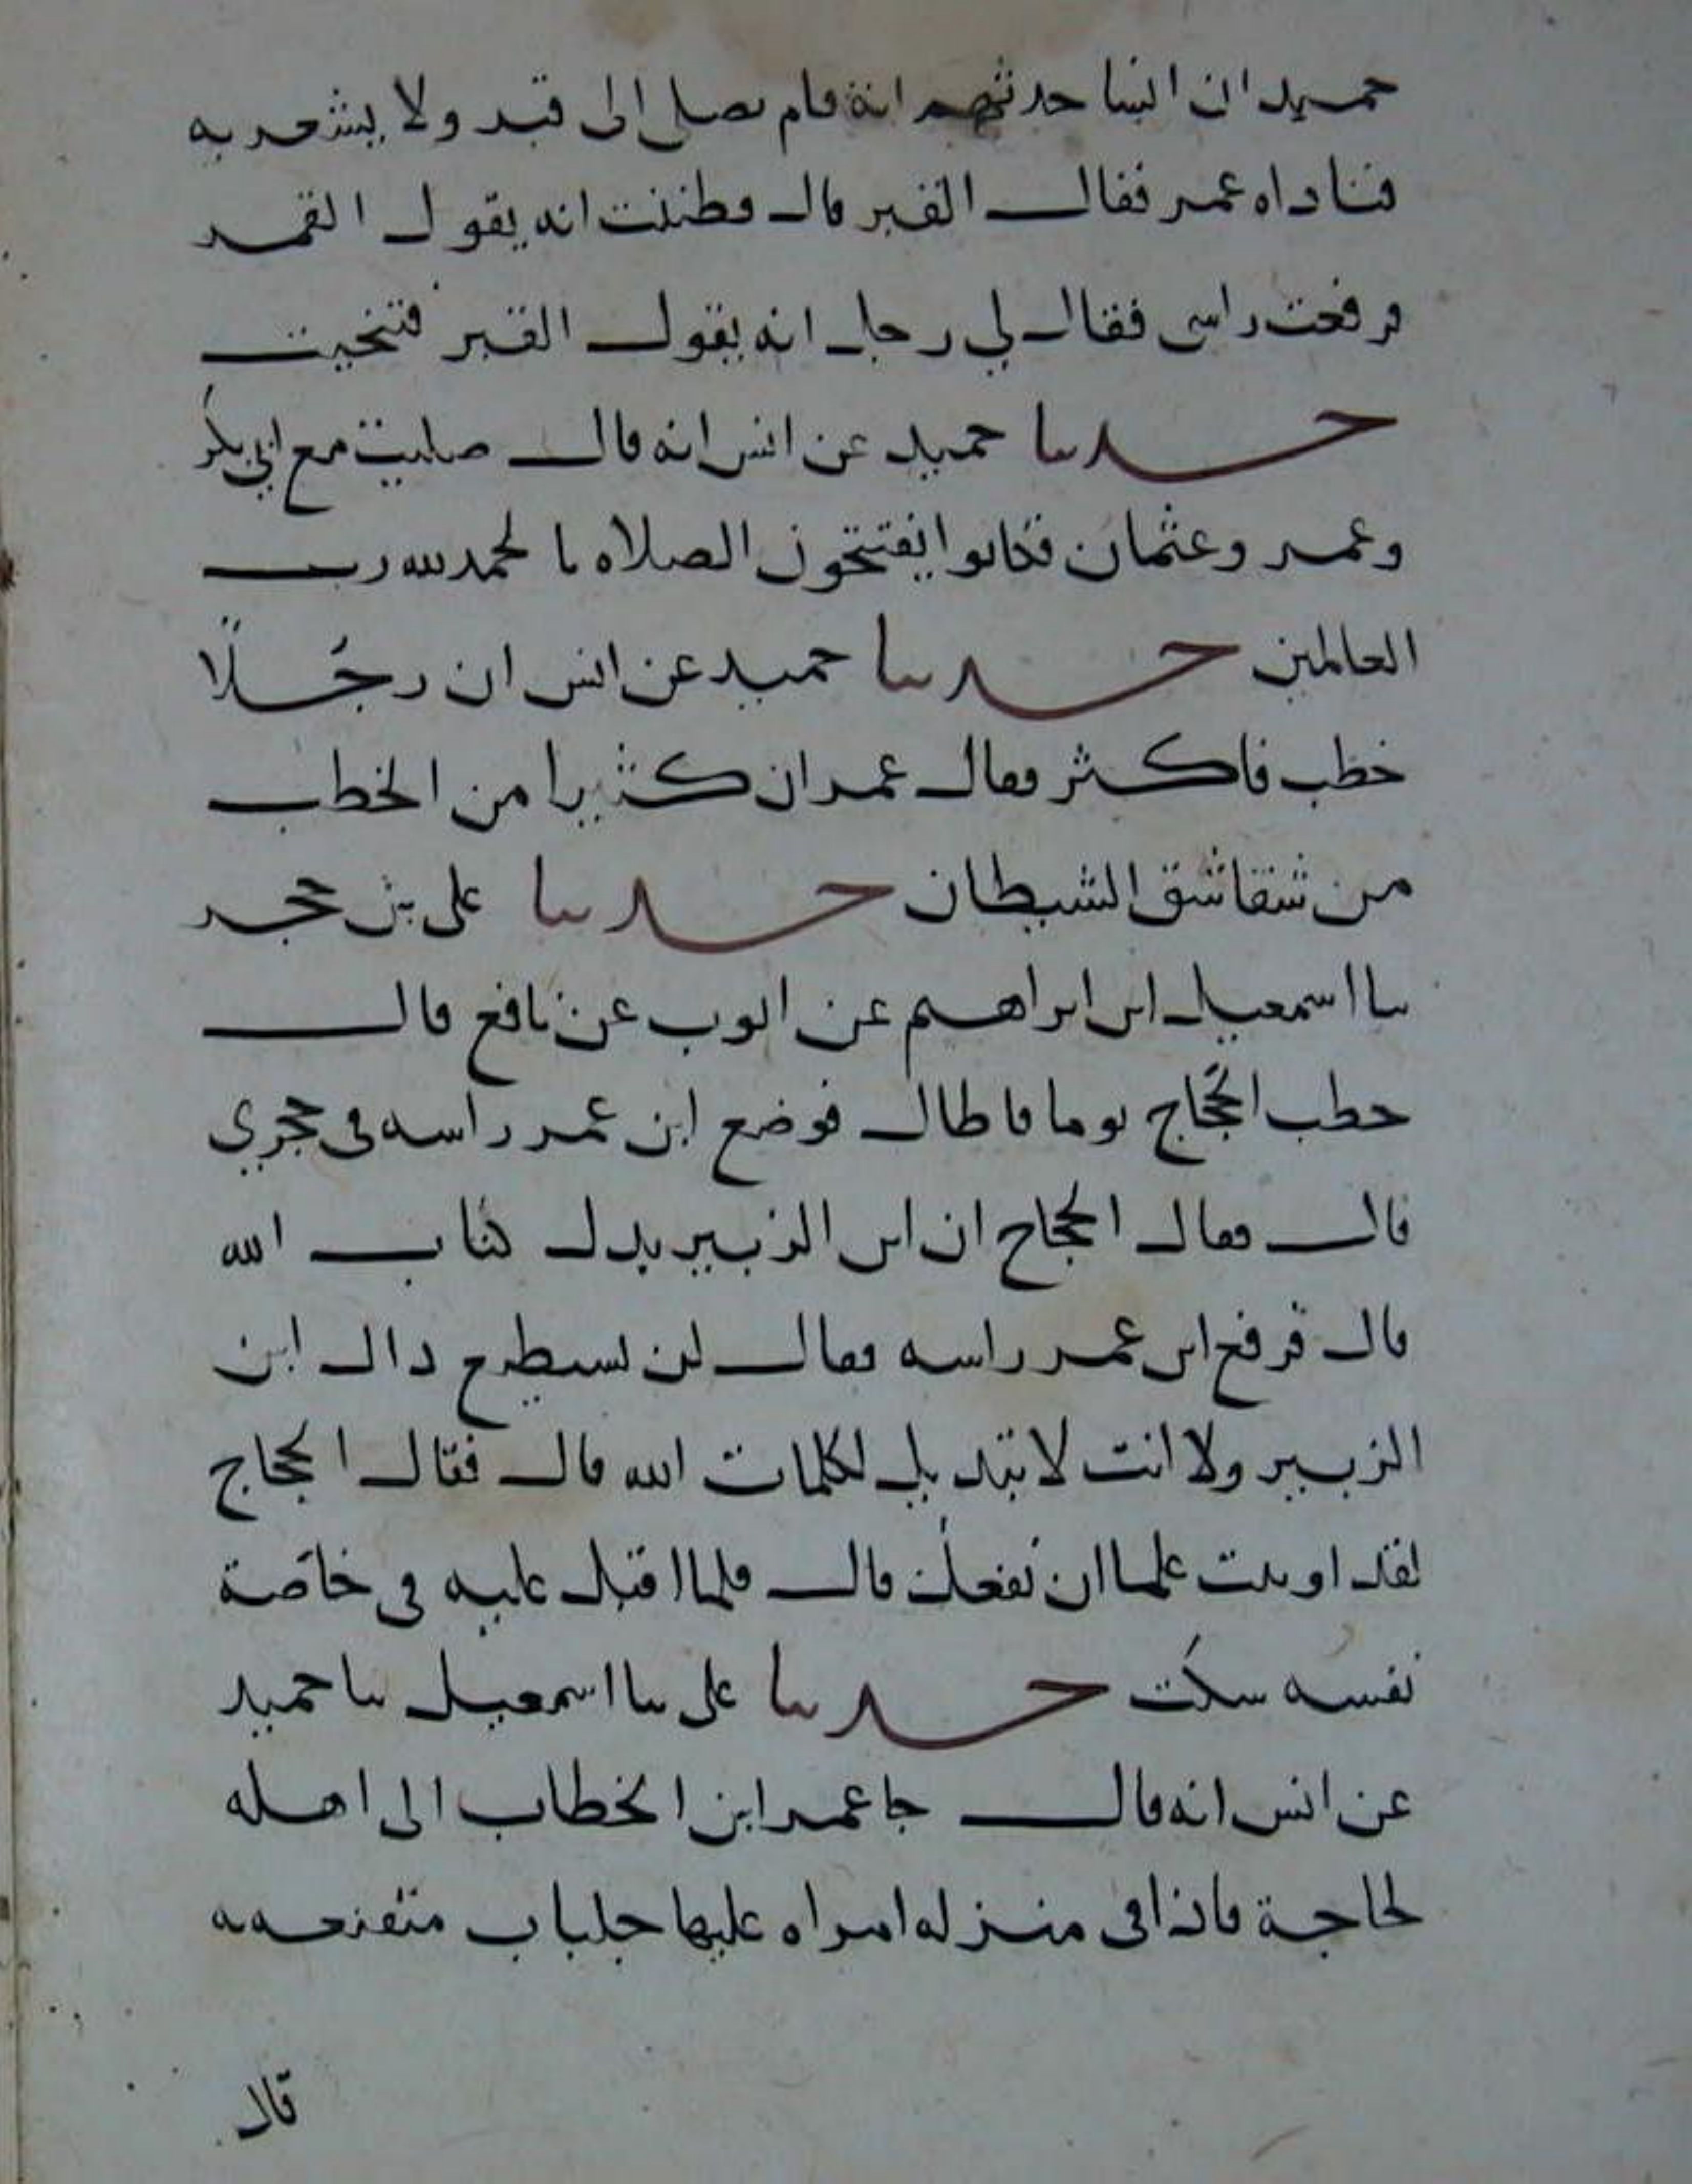 حميد ان انسا حدثهم انه قام يصلي الى قبر ولا يشعر به
فناداه عمر فقال القبر قال فظننت انه يقول القمر
فرفعت راسي فقال لي رجل انه يقول القبر فتنحيت
حدثنا حميد عن انس انه قال صليت مع ابي بكر
وعمر وعثمان فكانوا يفتتحون الصلاه بالحمد لله رب
العالمين حدثنا حميد عن انس ان رجلا
خطب فاكثر فقال عمر ان كثيرا من الخطب
من شقاشق الشيطان حدثنا علي بن حجر
ثنا اسمعيل ابن ابراهيم عن ايوب عن نافع قال
خطب الحجاج يوما فاطال فوضع ابن عمر راسه في حجري
قال فقال الحجاج ان ابن الزبير بدل كتاب الله
قال فرفع ابن عمر راسه فقال لن يستطيع ذاك ابن
الزبير ولا انت لا تبديل لكلمات الله قال فقال الحجاج
لقد اوتيت علما ان نفعك قال فلما اقبل عليه في خاصة
نفسه سكت حدثنا علي ثنا اسمعيل ثنا حميد
عن انس انه قال جا عمر ابن الخطاب الى اهله
لحاجة فاذا في منزله امراه عليها جلباب متقنعه به
قال